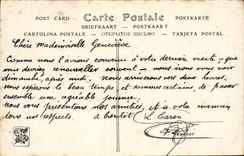 POST CARD Carte Postale POSTKARTE
BRIEFKAART POSTKAART
CARTOLINA POSTALE ОТКРЫТОЕ ПИСЬМО TARJETA POSTAL
Chère Mademoiselle Geneviève
Comme nous l'avions convenu à votre dernière visite - que
vous devriez renouveller souvent - nous irons vous voir
dimanche, après midi. Nous arriverons vers deux heures.
nous espérons le beau temps, et sommes certains de passer
ensemble une agréable journée.
Nous vous présentons nos amitiés, et à votre maman
tous nos respects. a bientôt L. Caron